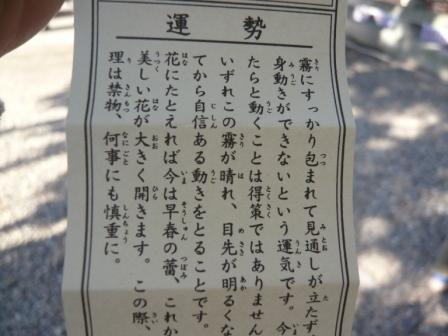 運勢
霧にすっかり包まれて見通しが立たず
身動きができないという運気です。今
たらと動くことは得策ではありません
いずれこの霧が晴れ、目先が明るくな
てから自信ある動きをとることです。
花にたとえれば今は早春の蕾、これか
美しい花が大きく開きます。この際、
理は禁物、何事にも慎重に。